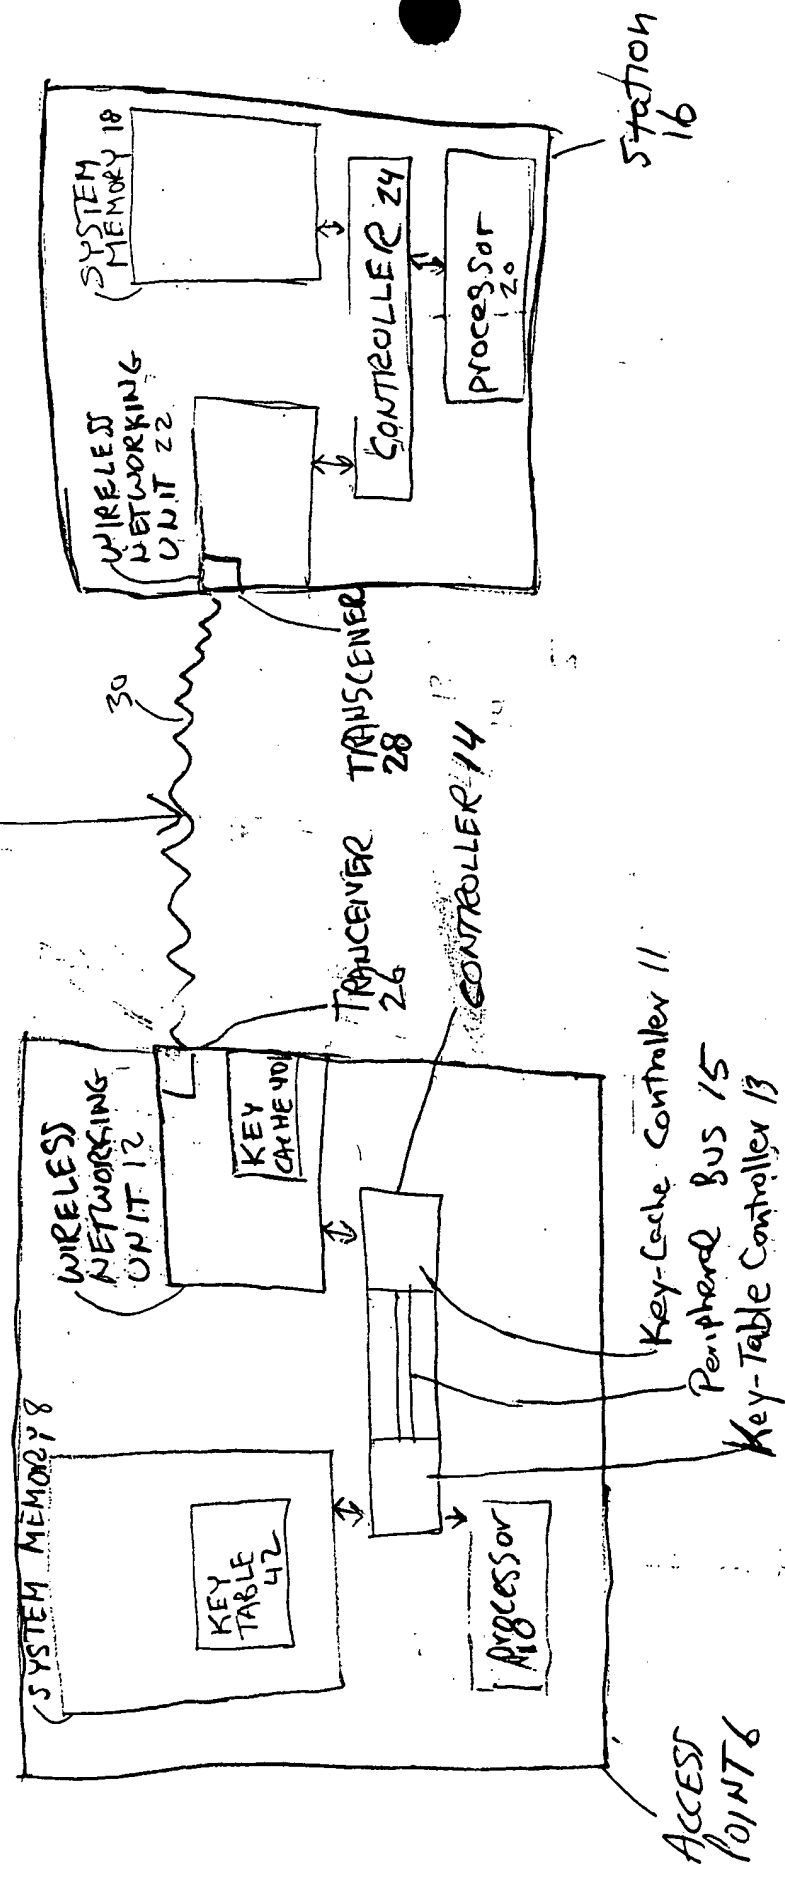 SYSTEM MEMORY 8
KEY
TABLE
42
WIRELESS
NETWORKING
UNIT 12
KEY
CACHE 40
Processor
10
ACCESS
POINT 6
Key-Cache Controller 11
Peripheral BUS 15
Key-Table Controller 13
CONTROLLER 14
TRANCEIVER
26
30
TRANSCEIVER
28
WIRELESS
NETWORKING
UNIT 22
SYSTEM
MEMORY 18
CONTROLLER 24
processor
20
Station
16